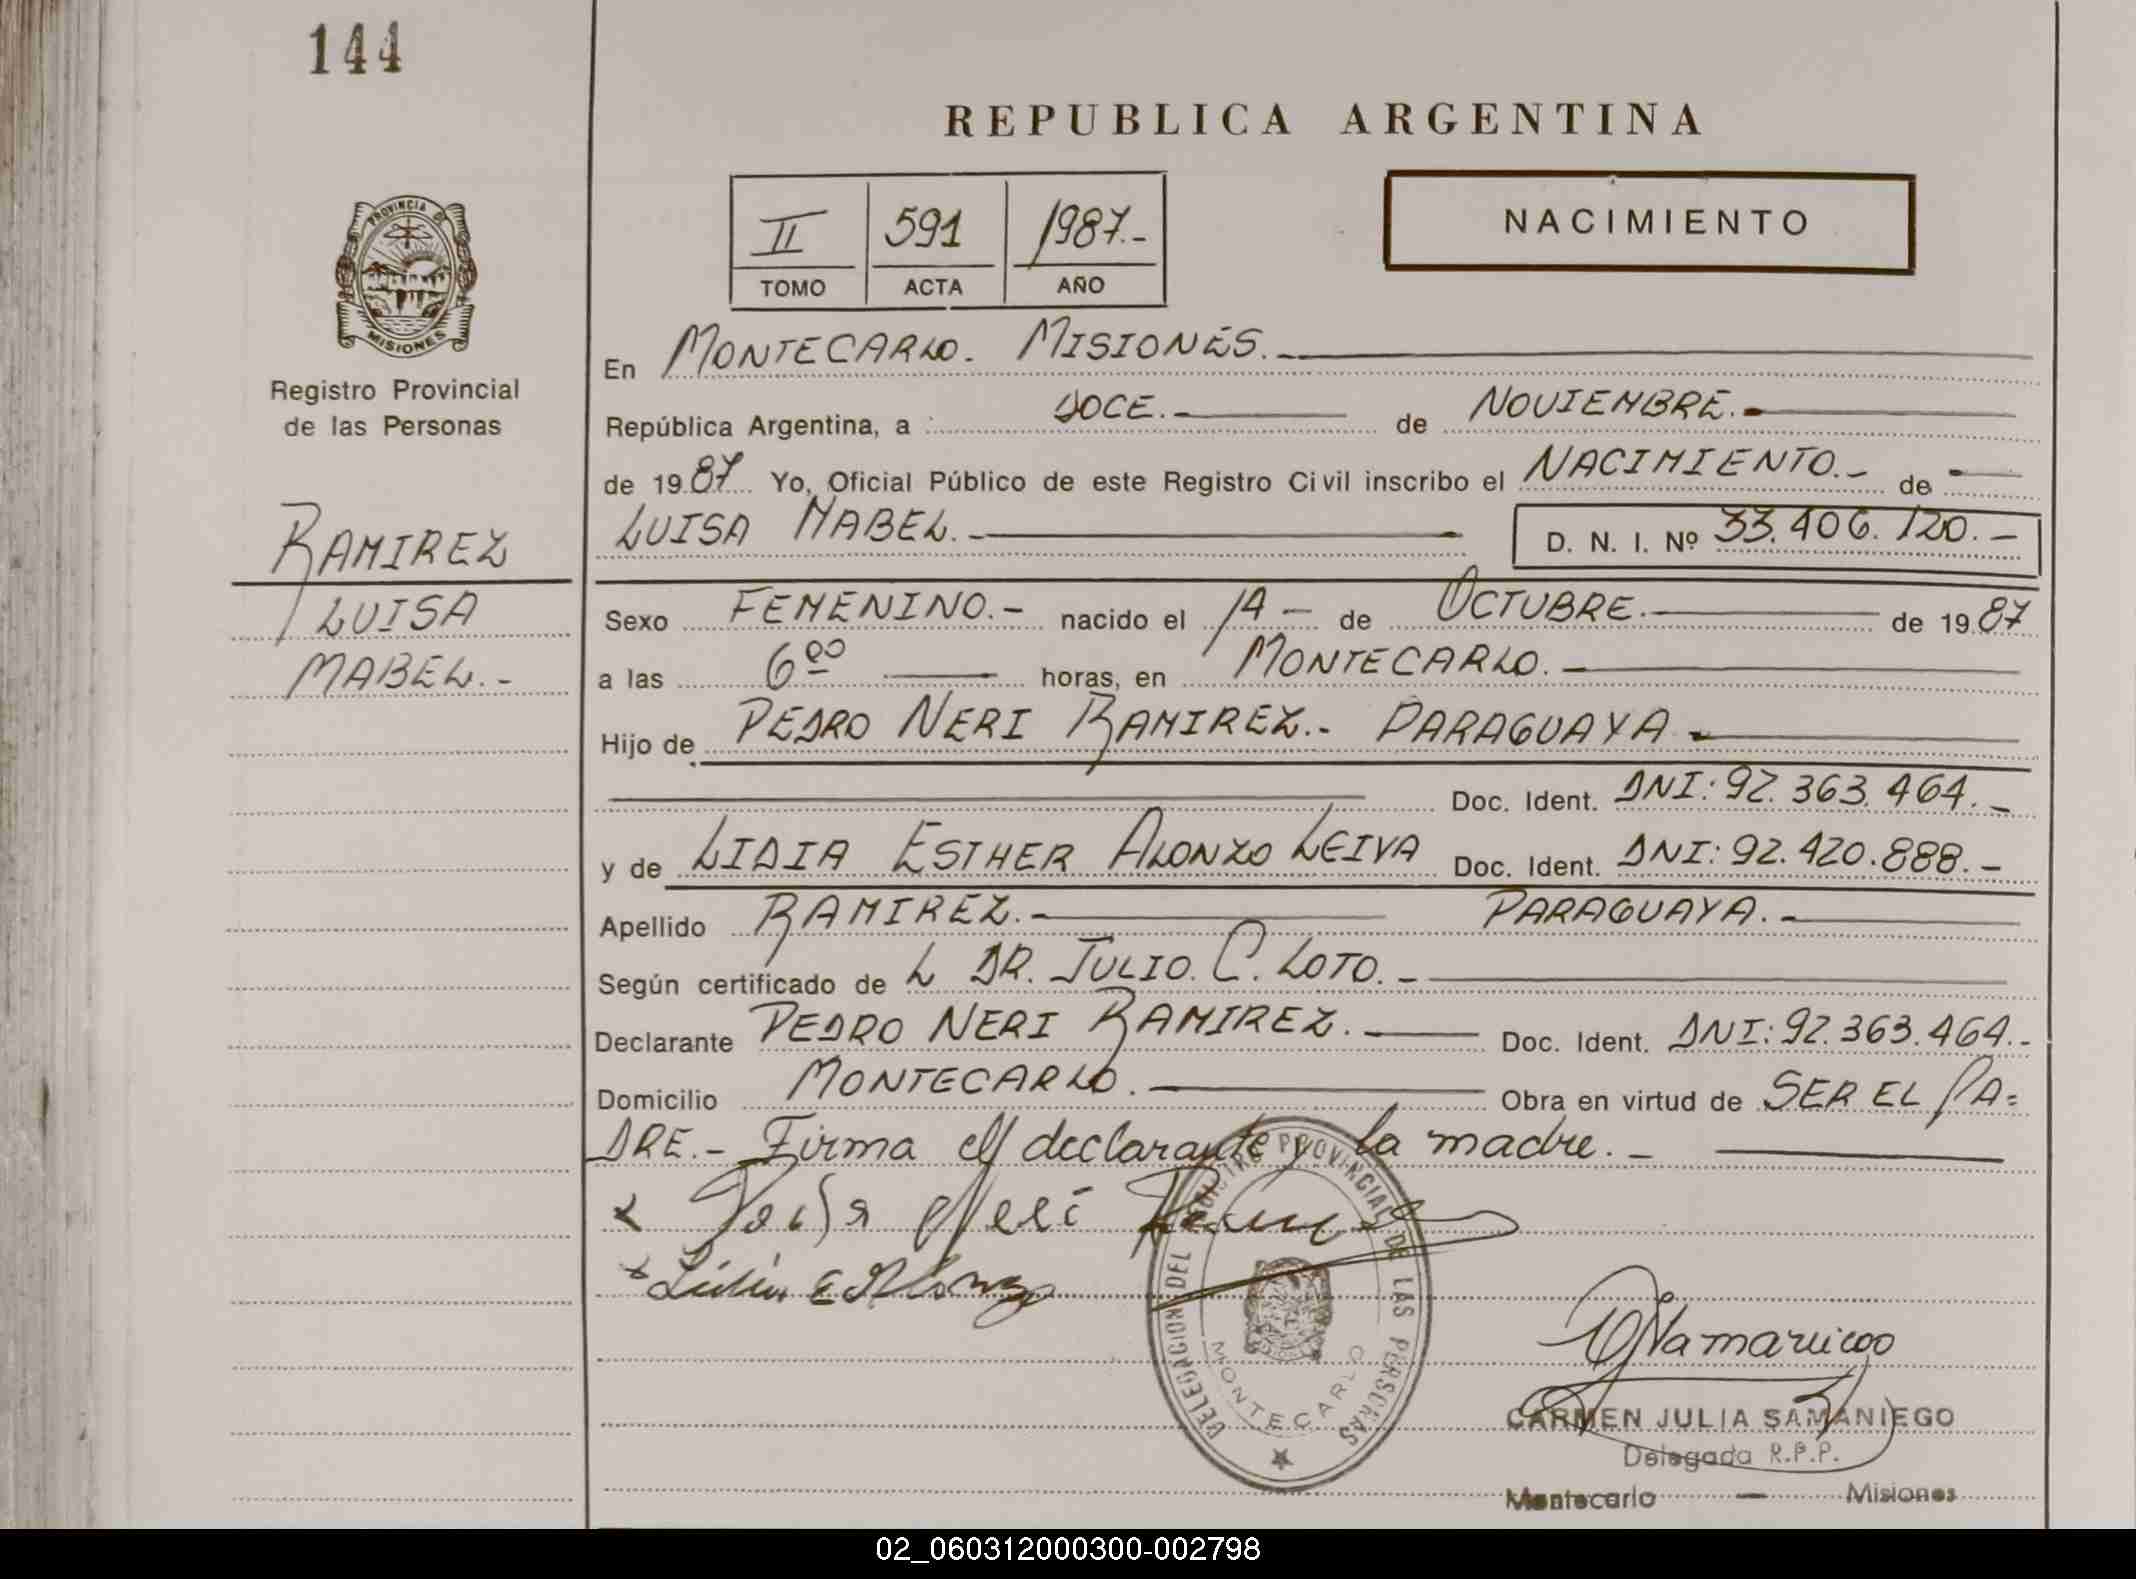 144
REPUBLICA ARGENTINA
II 591 1987.-
TOMO ACTA AÑO
NACIMIENTO
PROVINCIA DE
MISIONES
Registro Provincial
de las Personas
RAMIREZ
LUISA
MABEL.-
En MONTECARLO. MISIONES.-
República Argentina, a DOCE.- de NOVIEMBRE.-
de 1987 Yo, Oficial Público de este Registro Civil inscribo el NACIMIENTO.- de -
LUISA MABEL.- D. N. I. Nº 33.406.120.-
Sexo FEMENINO.- nacido el 14- de OCTUBRE.- de 1987
a las 600 horas, en MONTECARLO.-
Hijo de PEDRO NERI RAMIREZ.- PARAGUAYA-
Doc. Ident. DNI: 92.363.464.-
y de LIDIA ESTHER ALONZO LEIVA Doc. Ident. DNI: 92.420.888.-
Apellido RAMIREZ.- PARAGUAYA.-
Según certificado de L DR. JULIO. C. LOTO.-
Declarante PEDRO NERI RAMIREZ.- Doc. Ident. DNI: 92.363.464.-
Domicilio MONTECARLO.- Obra en virtud de SER EL PA=
DRE.- Firma el declarante y la madre.-
Neri
Lidia E Alonzo
DELEGACION DEL REGISTRO PROVINCIAL DE LAS PERSONAS
MONTECARLO
CARMEN JULIA SAMANIEGO
Delegada R.P.P.
Montecarlo - Misiones
02_060312000300-002798